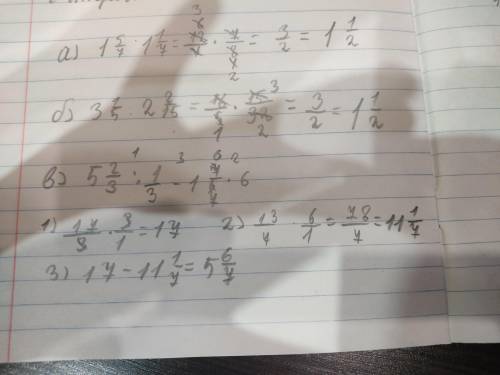 а) 1 5/7 : 1 1/7 = 12/7 · 7/8 = 3/2 = 1 1/2
б) 3 1/5 : 2 2/15 = 16/5 · 15/32 = 3/2 = 1 1/2
в) 5 2/3 : 1/3 - 1 6/7 · 6
1) 17/3 · 3/1 = 17 2) 13/7 · 6/1 = 78/7 = 11 1/7
3) 17 - 11 1/7 = 5 6/7